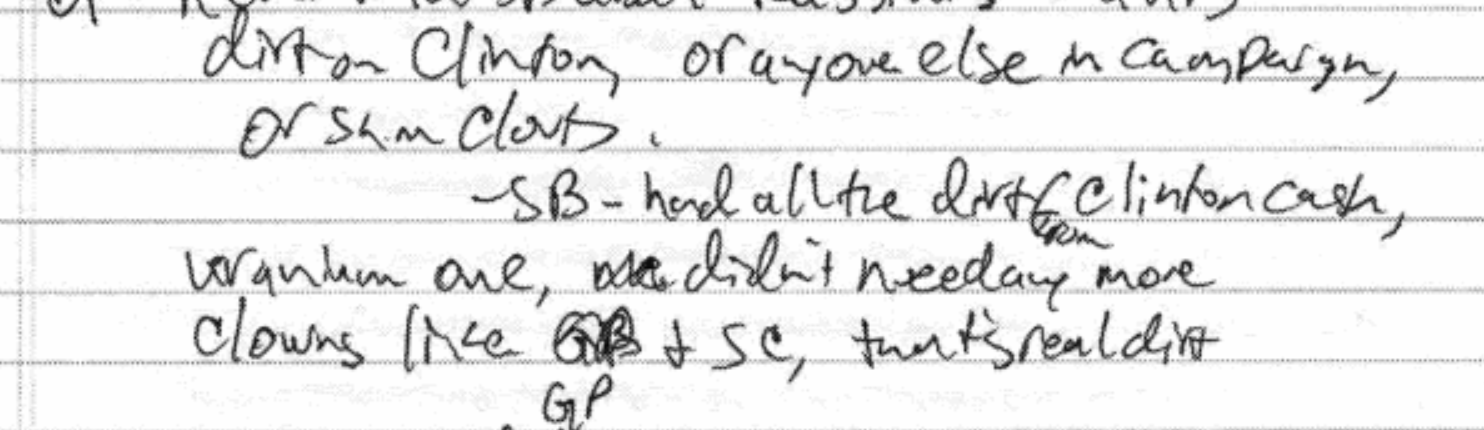 dirt on Clinton, or anyone else in campaign,
or Sam Clovis.
- SB - had all the dirt from Clinton Cash,
uranium one, didn't need any more
clowns like + SC, that's real dirt
GP